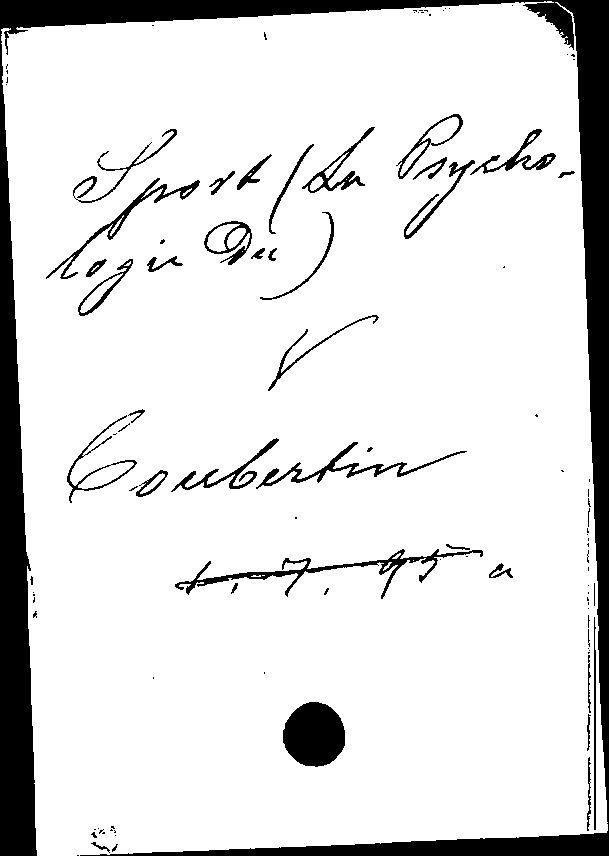 Sport (La Psycho-
logie Du)
V
Coubertin
1. 7. 95 a